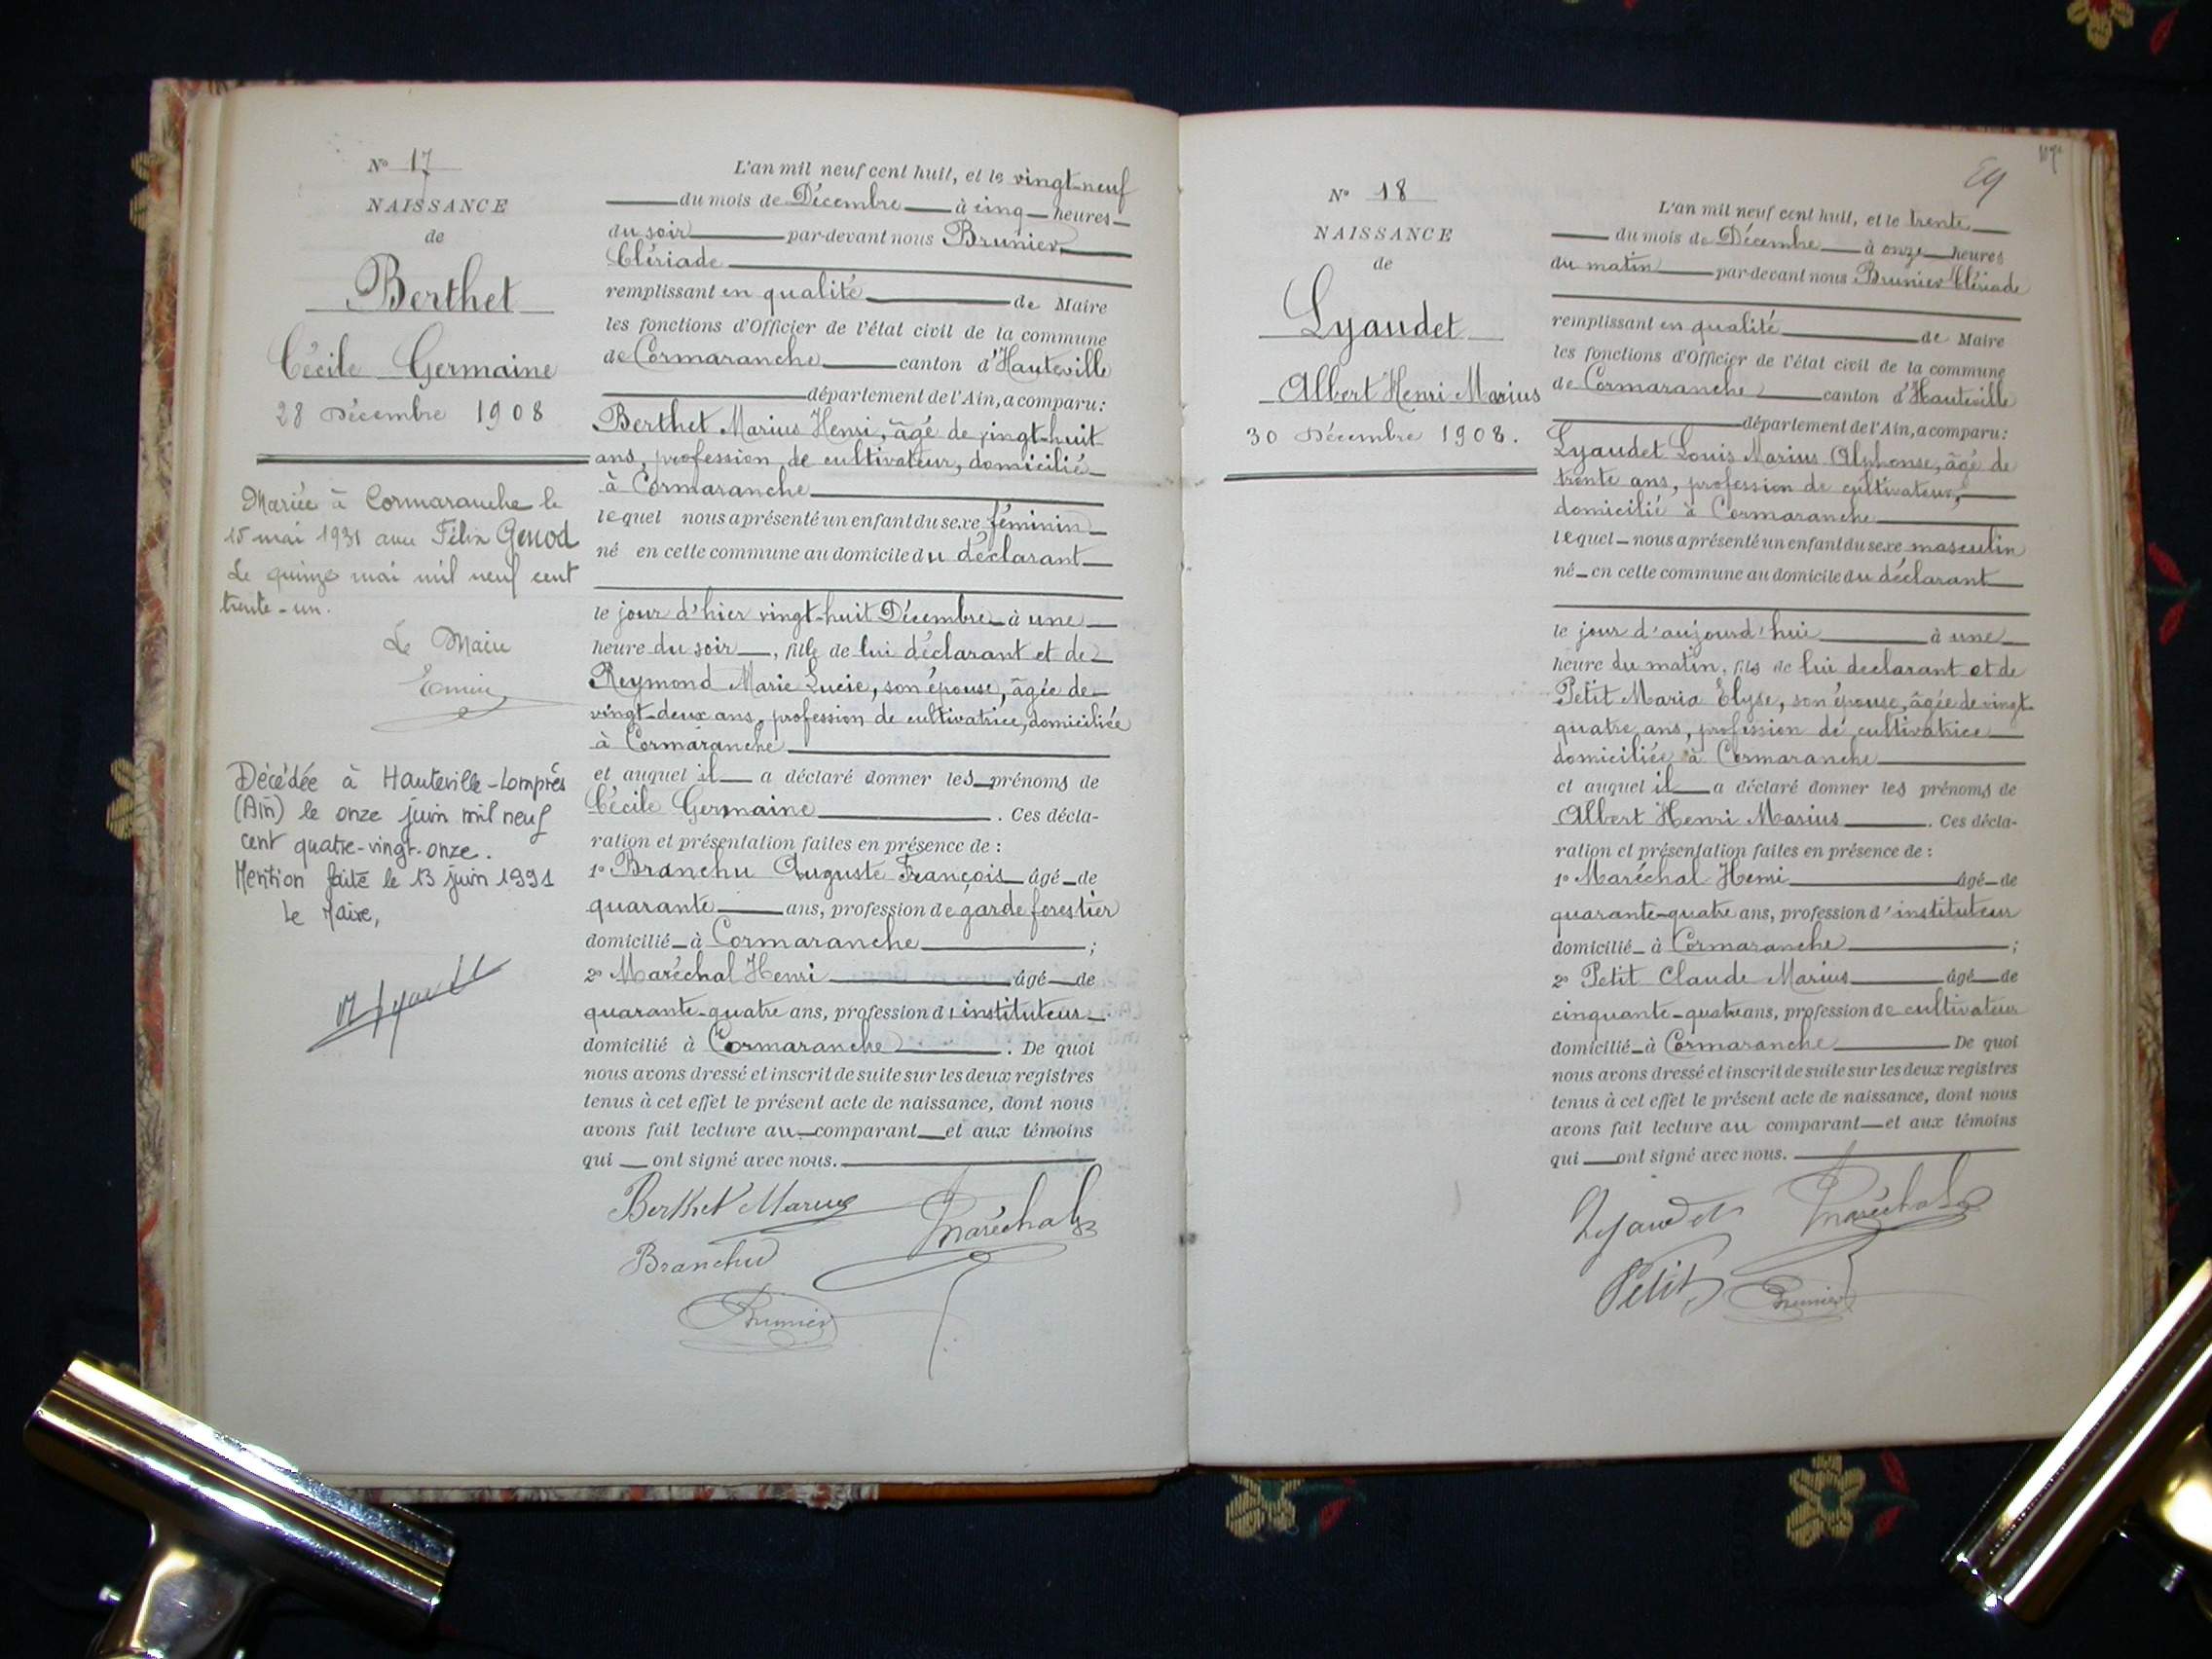 N° 17
NAISSANCE
de
Berthet
Cécile Germaine
28 Décembre 1908
Mariée à Cormaranche le
15 mai 1931 avec Félix Genod
Le quinze mai mil neuf cent
trente-un.
Le Maire
Décédée à Hauteville-Lompnès
(Ain) le onze juin mil neuf
cent quatre-vingt-onze.
Mention faite le 13 juin 1991
Le Maire,
L'an mil neuf cent huit, et le vingt-neuf
du mois de Décembre à cinq heures
du soir par-devant nous Brunier
Clériade
remplissant en qualité de Maire
les fonctions d'Officier de l'état civil de la commune
de Cormaranche canton d'Hauteville
département de l'Ain, a comparu:
Berthet Marius Henri, âgé de vingt-huit
ans, profession de cultivateur, domicilié
à Cormaranche
lequel nous a présenté un enfant du sexe féminin
né en cette commune au domicile du déclarant
le jour d'hier vingt-huit Décembre à une
heure du soir, fille de lui déclarant et de
Reymond Marie Lucie, son épouse, âgée de
vingt-deux ans, profession de cultivatrice, domiciliée
à Cormaranche
et auquel il a déclaré donner les prénoms de
Cécile Germaine. Ces décla-
ration et présentation faites en présence de :
1° Branchu Auguste François âgé de
quarante ans, profession de garde forestier
domicilié à Cormaranche ;
2° Maréchal Henri âgé de
quarante-quatre ans, profession d'instituteur
domicilié à Cormaranche. De quoi
nous avons dressé et inscrit de suite sur les deux registres
tenus à cet effet le présent acte de naissance, dont nous
avons fait lecture au comparant et aux témoins
qui ont signé avec nous.
Berthet Marius Maréchal
Branchu
Brunier
N° 18
NAISSANCE
de
Lyaudet
Albert Henri Marius
30 Décembre 1908.
L'an mil neuf cent huit, et le trente
du mois de Décembre à onze heures
du matin par-devant nous Brunier Clériade
remplissant en qualité de Maire
les fonctions d'Officier de l'état civil de la commune
de Cormaranche canton d'Hauteville
département de l'Ain, a comparu:
Lyaudet Louis Marius Alphonse, âgé de
trente ans, profession de cultivateur,
domicilié à Cormaranche
lequel nous a présenté un enfant du sexe masculin
né en cette commune au domicile du déclarant
le jour d'aujourd'hui à une
heure du matin, fils de lui déclarant et de
Petit Maria Elyse, son épouse, âgée de vingt-
quatre ans, profession de cultivatrice
domiciliée à Cormaranche
et auquel il a déclaré donner les prénoms de
Albert Henri Marius. Ces décla-
ration et présentation faites en présence de :
1° Maréchal Henri âgé de
quarante-quatre ans, profession d'instituteur
domicilié à Cormaranche ;
2° Petit Claude Marius âgé de
cinquante-quatre ans, profession de cultivateur
domicilié à Cormaranche De quoi
nous avons dressé et inscrit de suite sur les deux registres
tenus à cet effet le présent acte de naissance, dont nous
avons fait lecture au comparant et aux témoins
qui ont signé avec nous.
Lyaudet Maréchal
Petit Brunier